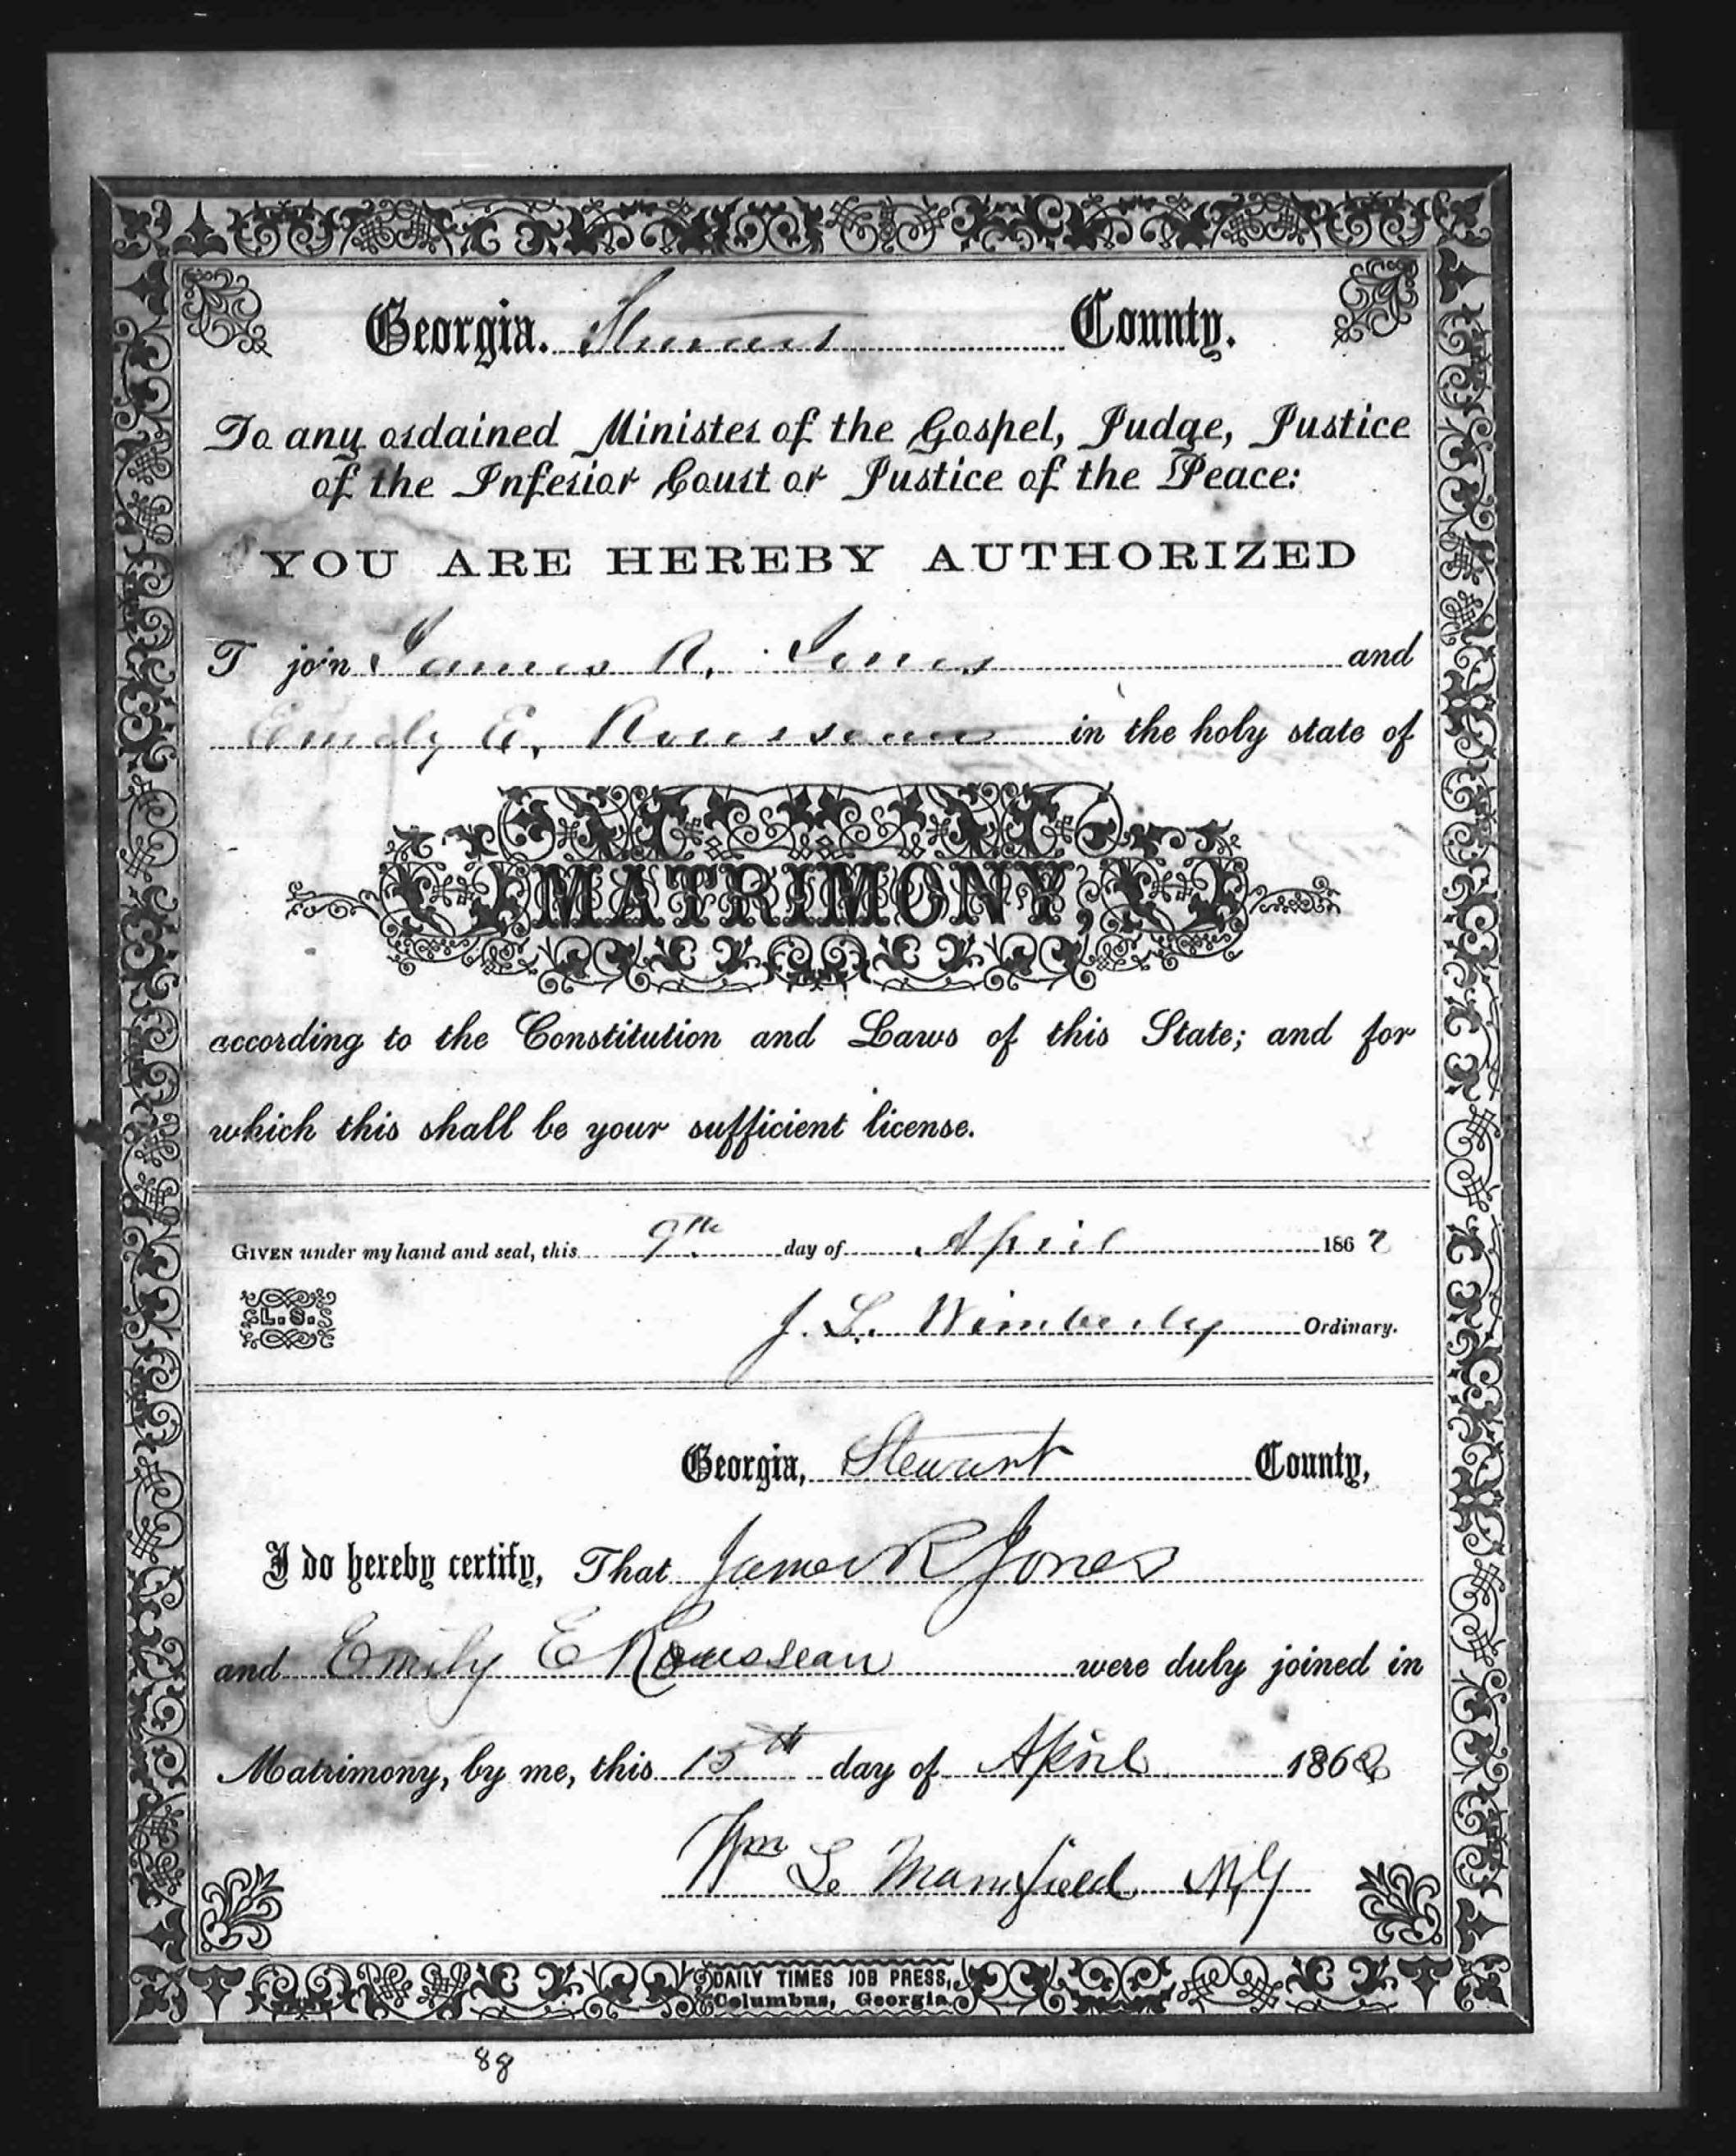 Georgia. Stewart County.
To any ordained Minister of the Gospel, Judge, Justice
of the Inferior Court or Justice of the Peace:
YOU ARE HEREBY AUTHORIZED
T join James R. Jones and
Emily E. Rousseau in the holy state of
MATRIMONY,
according to the Constitution and Laws of this State; and for
which this shall be your sufficient license.
GIVEN under my hand and seal, this 9th day of April 1862
L.S.
J. L. Wimberly Ordinary.
Georgia, Stewart County,
I do hereby certify, That James R Jones
and Emily E Rousseau were duly joined in
Matrimony, by me, this 15th day of April 1862
Wm L. Mansfield MG
DAILY TIMES JOB PRESS,
Columbus, Georgia.
88